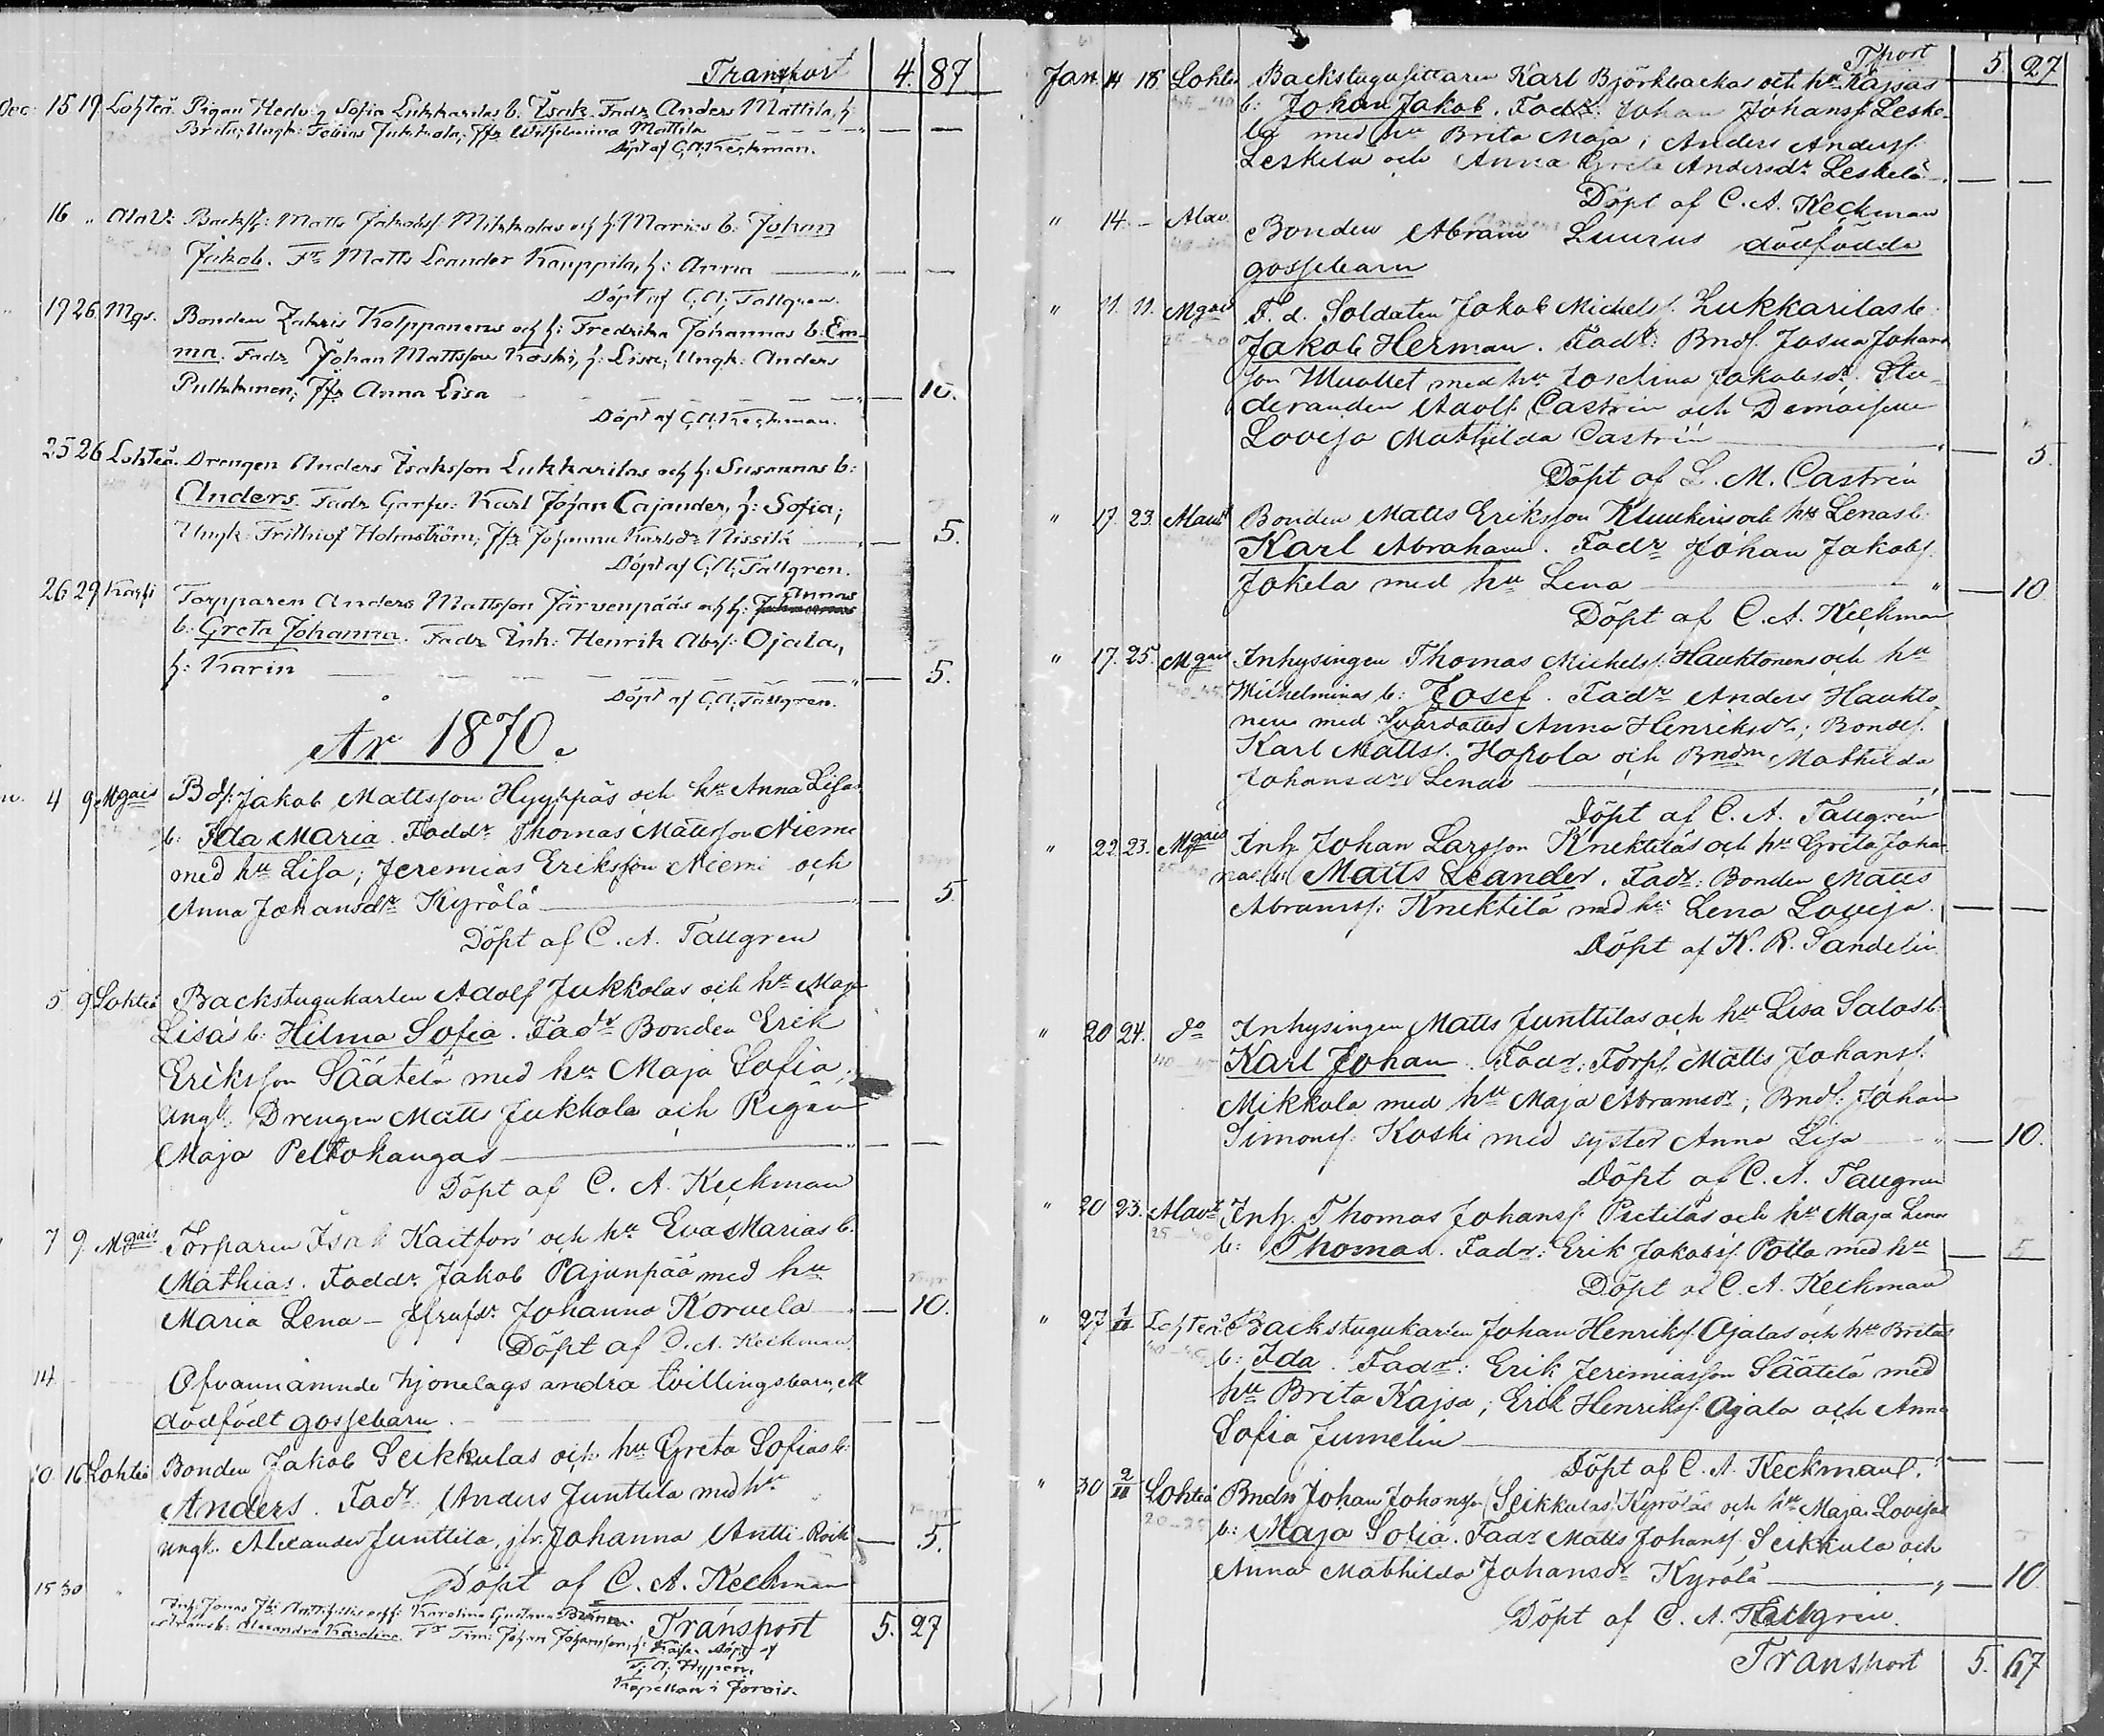 Transport 4. 87
Dec: 15 19 Lohteå. Pigan Hedvig Sofia Lukkarilas b. Isak. Fadr Anders Mattila, h:
Brita, Ungk: Tobias Jukkola, Jfr Wilhelmina Mattila — —
Döpt af C. A. Keckman.
16 " Alav: Backst: Matts Jakobss. Mikkolas och h: Marias b: Johan
Jakob. Fr Matts Leander Kauppila, h: Anna — —
Döpt af C. A. Tallgren.
19 26 Mgs. Bonden Zakris Kolppanens och h: Fredrika Johannas b: Em-
ma. Fadr Johan Mattsson Koski, h: Lisa; Ungk: Anders
Pulkkinen; Jfr Anna Lisa — 10.
Döpt af C. A. Keckman.
25 26 Lohteå. Drengen Anders Isaksson Lukkarilas och h: Susannas b:
Anders. Fadr Garfv: Karl Johan Cajander, h: Sofia;
Ungk: Frithiof Holmström; Jfr Johanna Karlsdr Nissilä — 5.
Döpt af C. A. Tallgren.
26 29 Karhi Torpparen Anders Mattsson Järvenpääs och h: Annas
b: Greta Johanna. Fadr Inh: Henrik Abrs: Ojala,
h: Karin — 5.
Döpt af C. A. Tallgren.
År 1870.
4 9 Mgais Bds: Jakob Mattsson Hyyppäs och hu Anna Lisas
b: Ida Maria. Faddr Thomas Mattsson Niemi
med hu Lisa; Jeremias Eriksson Niemi och
Anna Johansdr Kyrölä — 5.
Döpt af C. A. Tallgren
5 9 Lohteå Backstugukarlen Adolf Jukkolas och hu Maja
Lisa b: Hilma Sofia. Fadr Bonden Erik
Eriksson Säätelä med hu Maja Sofia;
ungk: Drengen Matts Jukkola och Pigan
Maja Peltokangas — —
Döpt af C. A. Keckman
7 9 Mgais Torparen Isak Kaitfors och hu Eva Marias b.
Mathias. Faddr Jakob Pajunpää med hu
Maria Lena — Johanna Korvela — 10.
Döpt af C. A. Keckman
14 Ofvannämnde hjonelags andra tvillingsbarn, ett
dödfödt gossebarn. — —
10 16 Lohteå Bonden Jakob Seikkulas och hu Greta Sofias b:
Anders. Fadr: Anders Junttila med hu
ungk. Alexander Junttila, jfr. Johanna Antti-Roik — 5.
Döpt af C. A. Keckman
15 30 " Inh: Jonas och h: Karolina Gustava
b: Alexandra Karolina. Fr Tim: Johan Johansson, h: Kaisa. Döpt af
F. A. Hyppen,
Kapellan i Jorois.
Transport 5. 27
Tport 5 27
Jan. 14 18 Lohteå Backstugusittaren Karl Björkbackas och hu Kajsas
b: Johan Jakob. Fadr: Johan Johanss. Leske-
lä med hu Brita Maja; Anders Anderss.
Leskelä och Anna Greta Andersdr Leskelä — —
Döpt af C. A. Keckman
" 14. – Alav. Bonden Abram Luurus dödfödda
gossebarn
" 11. 11. Mgais F. d. Soldaten Jakob Michels. Lukkarilas b:
Jakob Herman. Fadr: Bnds. Josua Johans
son Muollet med hu Josefina Jakobsdr. Stu-
deranden Adolf Castrén och Demoiselle
Lovisa Mathilda Castrén — 5.
Döpt af L. M. Castrén
" 17. 23. Alavit Bonden Matts Eriksson Kluukeris och hu Lenas b:
Karl Abraham. Fadr Johan Jakobs.
Jokela med hu Lena — 10
Döpt af C. A. Keckman
" 17. 25. Mgais Inhysingen Thomas Michels. Hauktonens och hu
Wilhelminas b: Josef. Fadr Anders Haukto
nen med Anna Henriksdr; Bondes.
Karl Matts. Hopola och Bndm Mathilda
Johansdr Lenas — —
Döpt af C. A. Tallgrén
" 22. 23. Mgais Inh. Johan Larsson Knektiläs och hu Greta Johan
nas b: Matts Leander. Fadr: Bonden Matts
Abramss: Knektilä med hu Lena Lovisa. — —
Döpt af K. R. Sandelin
" 20 24. do Inhysingen Matts Junttilas och hu Lisa Salas b:
Karl Johan. Fadr: Torp. Matts Johanss.
Mikkola med hu Maja Abramsdr; Bnds: Johan
Simonss: Koski med syster Anna Lisa — 10.
Döpt af C. A. Tallgren
" 20 23. Alavt Inh. Thomas Johanss. Pietiläs och hu Maja Lena
b: Thomas. Fadr: Erik Jakobss. Potla med hu — 5
Döpt af C. A. Keckman
" 27 1/II Lohteå Backstugukarlen Johan Henrikss. Ojalas och hu Britas
b: Ida. Fadr: Erik Jeremiasson Säätelä med
hu Brita Kajsa; Erik Henrikss. Ojala och Anna
Sofia Jumelin — —
Döpt af C. A. Keckman.
" 30 2/II Lohteå Bndn Johan Johansson (Seikkulas) Kyröläs och hu Maja Lovisas
b: Maja Sofia. Fadr Matts Johanss. Seikkula och
Anna Mathilda Johansdr Kyrölä — 10
Döpt af C. A. Tallgren.
Transport 5. 67